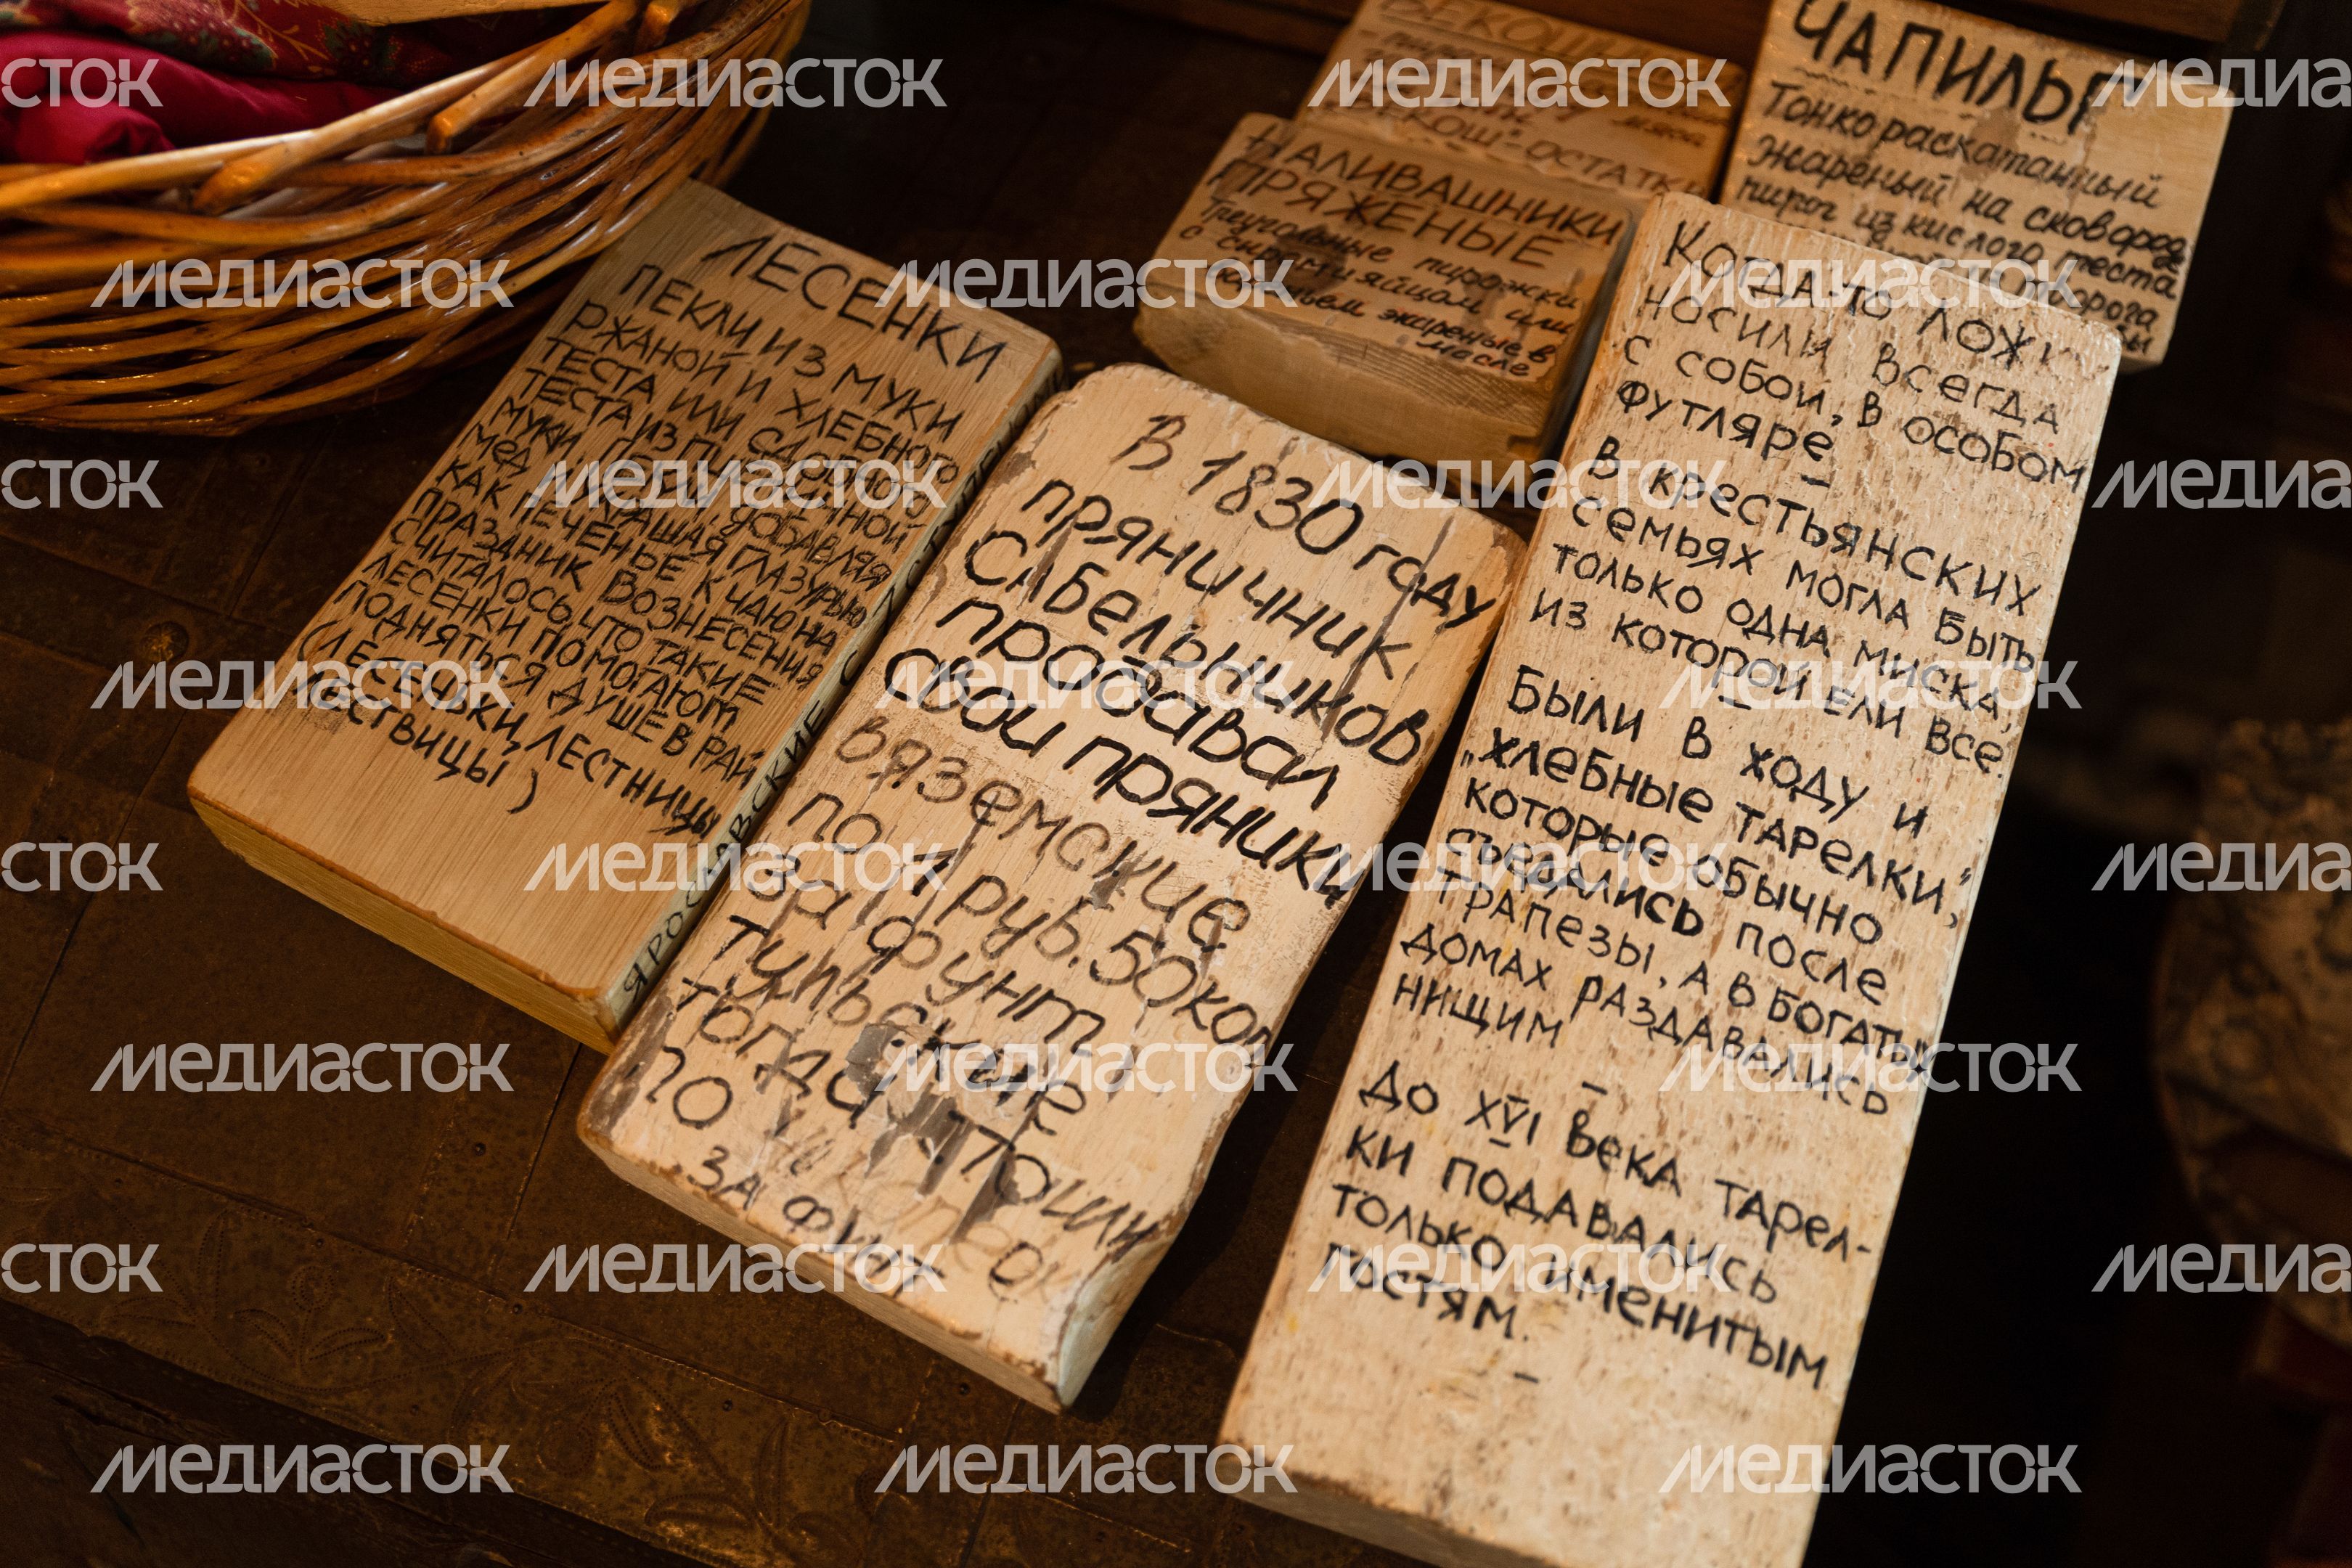 ЛЕСЕНКИ
ПЕКЛИ ИЗ МУКИ
РЖАНОЙ И ХЛЕБНОГО
ТЕСТА ИЛИ СДОБНОГО
ТЕСТА ИЗ ПШЕНИЧНОЙ
МУКИ, ПОРОЙ ДОБАВЛЯЯ
МЕД, УКРАШАЯ ГЛАЗУРЬЮ
КАК ПЕЧЕНЬЕ К ЧАЮ НА
ПРАЗДНИК ВОЗНЕСЕНИЯ
СЧИТАЛОСЬ, ЧТО ТАКИЕ
ЛЕСЕНКИ ПОМОГАЮТ
ПОДНЯТЬСЯ ДУШЕ В РАЙ
(ЛЕСТЕНЬКИ, ЛЕСТНИЦЫ
ЛЕСТВИЦЫ)
В 1830 году
пряничник
Сабельников
продавал
свои пряники
вяземские
по 1 руб. 50 коп
за фунт
тульские
тогда стоили
20 копеек
за фунт
ВЕКОШНИКИ
ВЕКОШ"-ОСТАТКИ
НАЛИВАШНИКИ
ПРЯЖЕНЫЕ
Треугольные пирожки
с сыром и яйцом или
вареньем жареные в
масле
ЧАПИЛЬГ
Тонко раскатанный
жареный на сковороде
пирог из кислого теста
творога
Когда-то ложк
носили всегда
с собой, в особом
футляре
В крестьянских
семьях могла быть
только одна миска,
из которой ели все.
Были в ходу и
„хлебные тарелки,"
которые обычно
съедались после
трапезы, а в богатых
домах раздавались
нищим
До XVI века тарел-
ки подавались
только именитым
гостям.